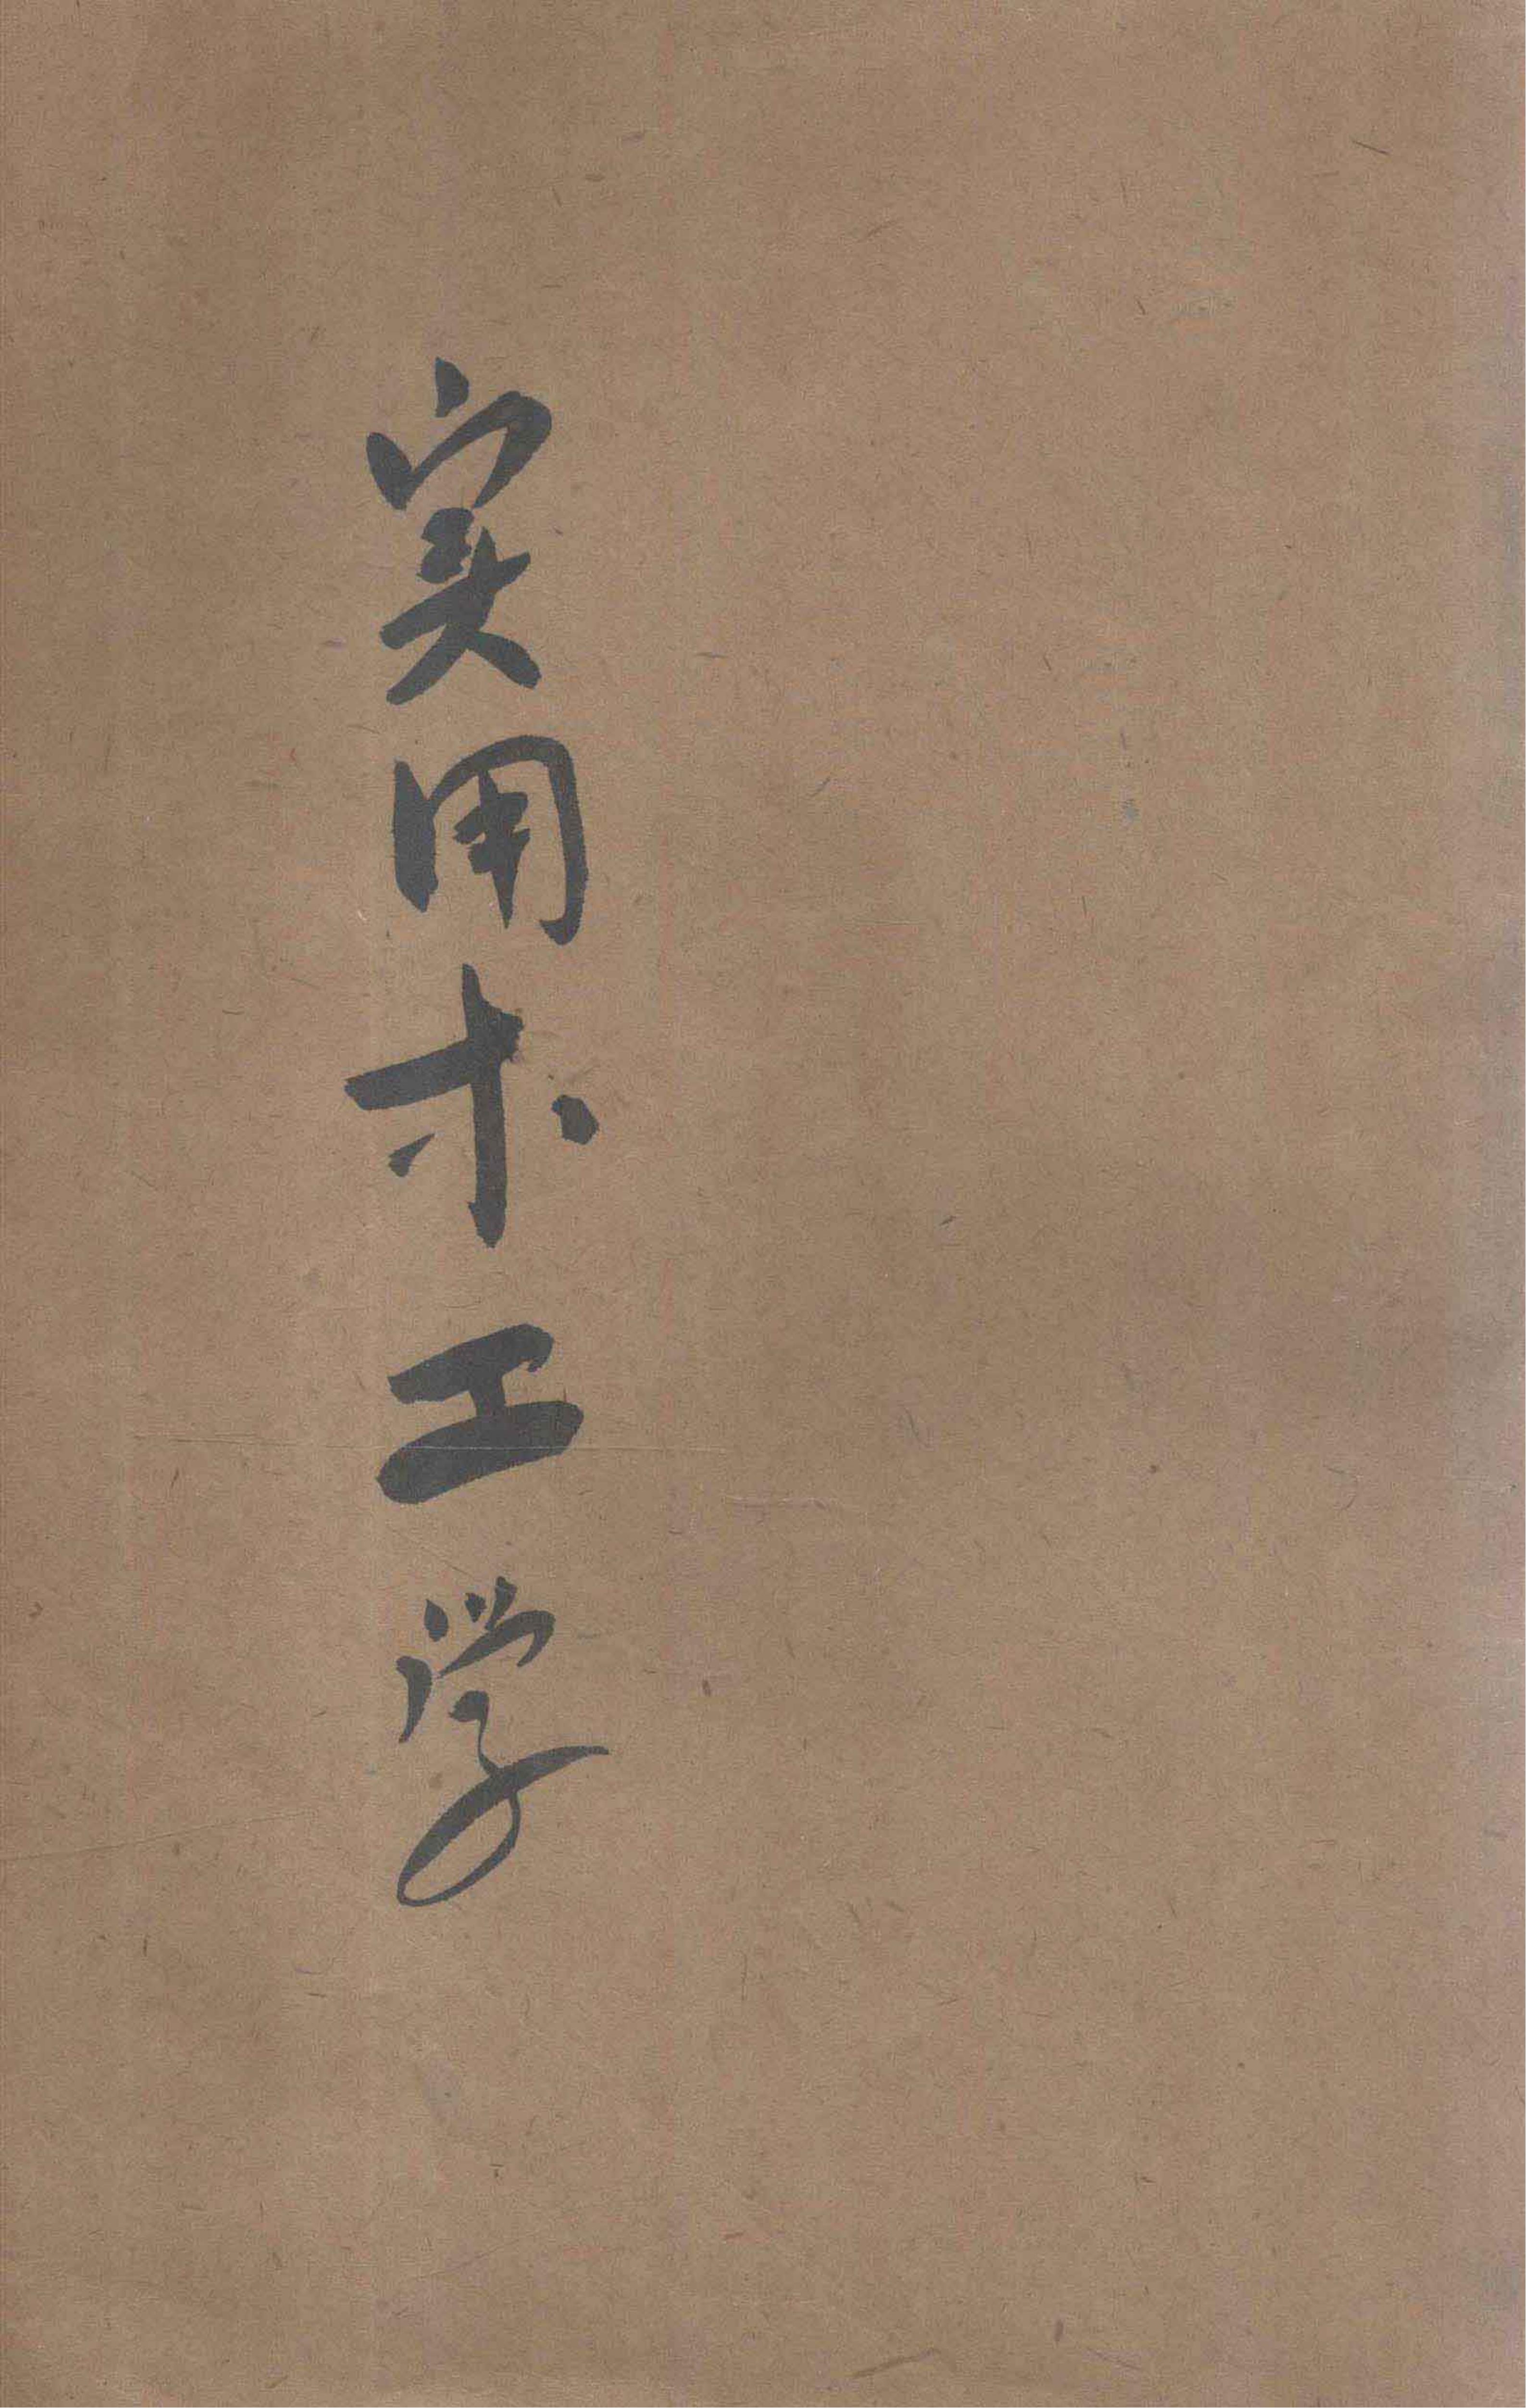 实用木工学